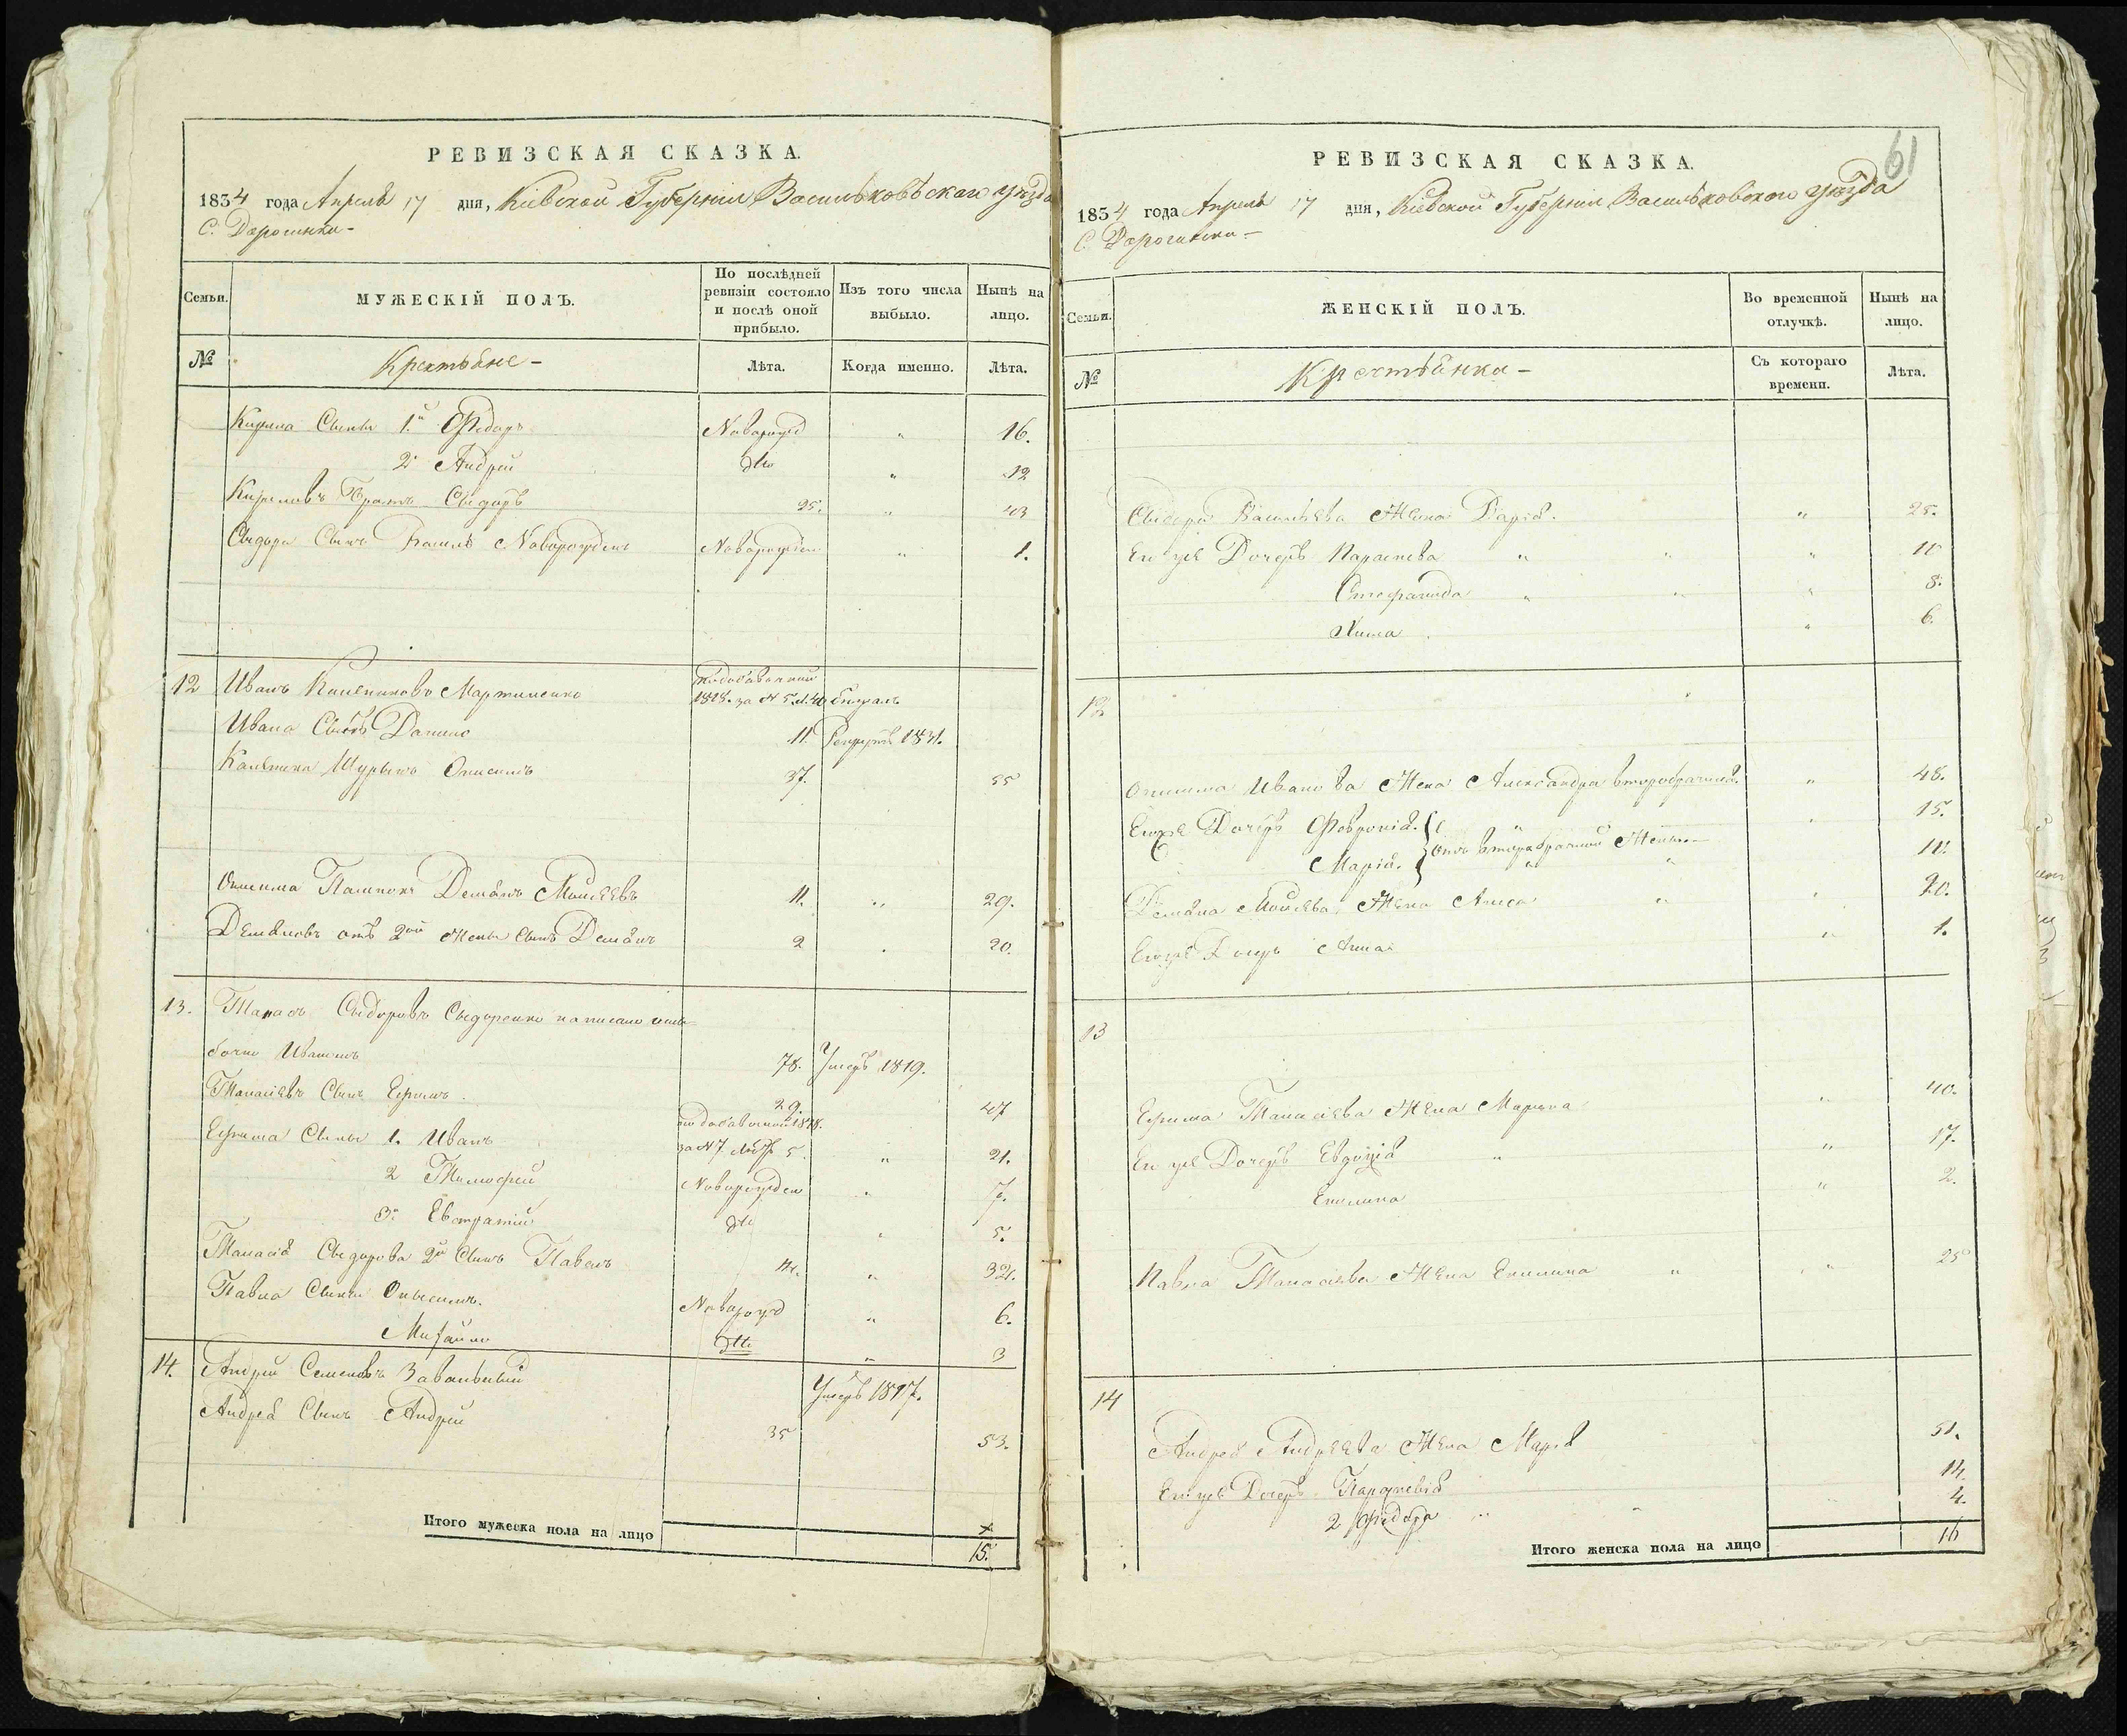 РЕВИЗСКАЯ СКАЗКА.
1834 года Апреля 17 дня, Кіевской Губерніи Васильковъскаго уезда
С. Дорогинки-
Семьи.
МУЖЕСКІЙ ПОЛЪ.
По послѣдней ревизіи состояло и послѣ оной прибыло.
Изъ того числа выбыло.
Нынѣ на лицо.
№
Крестьяне-
Лѣта.
Когда именно.
Лѣта.
Кирила Сыны 1й Федоръ Новорожд " 16.
2й Андрей дто " 12
Кириловъ Братъ Сыдоръ 25. " 43
Сыдора Сынъ Василь Новорожденъ Новорожден " 1.
12 Иванъ Калениковъ Мартиненко
1818. за № 5.
Ивана Сынъ Данило 11. 1831.
Каленика Шурынъ Онисимъ 37. 55
Онисима Демянъ Моисеевъ 11. " 29.
Демяновъ отъ 2ой жены сынъ Демянъ 2 " 20.
13. Танасъ Сыдоровъ Сыдоренко написано ошы-
бочно Иваномъ 78. Умеръ 1819.
Танасіевъ Сынъ Ефимъ 29. 47
Ефима Сыны 1. Иванъ за №7 5. " 21.
2 Тимофей Новорожден " 7.
3. Евстратій дто " 5.
Танасія Сыдорова 2й Сынъ Павелъ 14. " 32.
Павла Сыны Онисимъ. Новорожд " 6.
Михайло дто " 3
14. Андрей Семеновъ Умеръ 1817.
Андрея Сынъ Андрей 35 53.
Итого мужеска пола на лицо
15.
61
РЕВИЗСКАЯ СКАЗКА.
1834 года Апреля 17 дня, Кіевской Губерніи Васильковского уезда
С. Дорогинки-
Семьи.
ЖЕНСКІЙ ПОЛЪ.
Во временной отлучкѣ.
Нынѣ на лицо.
№
Крестьянки-
Съ котораго времени.
Лѣта.
Сыдора Васильева Жена Дарія. " 25.
Ею же Дочерь Параскева " " " 10
Стефанида " " " 8.
Хима " 6.
12
Онисима Иванова Жена Александра второбрачная. " 48.
Ею же Дочерь Февронія. отъ второбрачной Жены.- 15.
Марія. 10.
Демяна Моисеева Жена " 20.
Ею же Дочерь Анна " 1.
13
Ефима Танасіева Жена Марына " 40.
Ею же Дочерь Евдокія " " 17.
" 2.
Павла Танасіева Жена " " 25
14
Андрея Андреева Жена Марія 51.
Ею же Дочерь Параскевія 14.
2 Федора " 4.
Итого женска пола на лицо
16